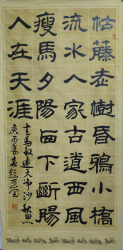 枯藤老樹昏鴉小橋
流水人家古道西風
瘦馬夕陽西下斷腸
人在天涯
馬致遠天淨沙秋思